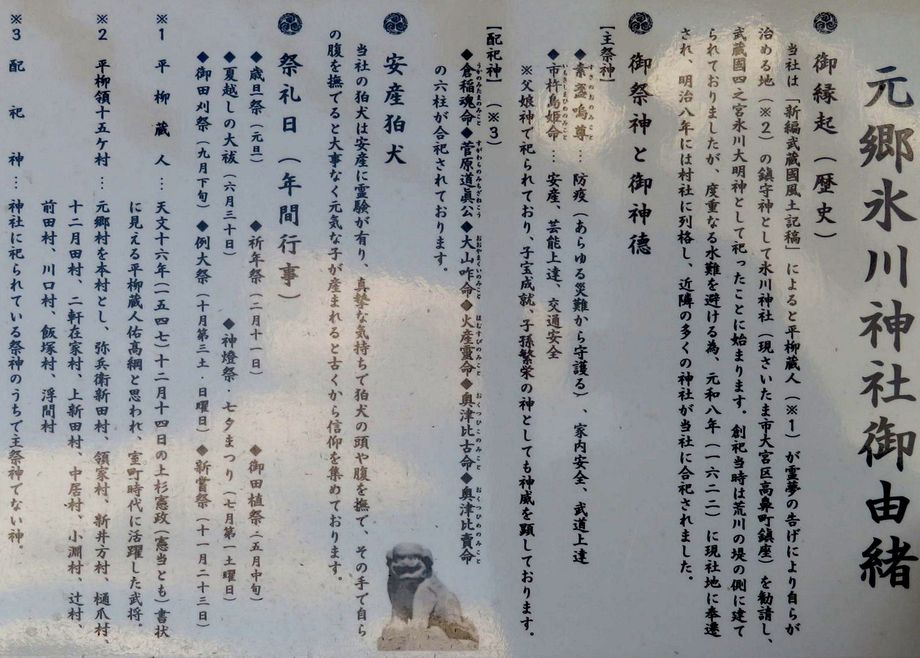 元郷氷川神社御由緒
御縁起（歴史）
当社は「新編武蔵國風土記稿」によると平柳蔵人（※1）が霊夢の告げにより自らが
治める地（※2）の鎮守神として氷川神社（現さいたま市大宮区高鼻町鎮座）を勧請し、
武蔵國四之宮氷川大明神として祀ったことに始まります。創祀当時は荒川の堤の側に建て
られておりましたが、度重なる水難を避ける為、元和八年（一六二二）に現社地に奉遷
され、明治八年には村社に列格し、近隣の多くの神社が当社に合祀されました。
御祭神と御神徳
［主祭神］
◆素盞嗚尊…防疫（あらゆる災難から守護る）、家内安全、武道上達
すさのおのみこと
◆市杵島姫命…安産、芸能上達、交通安全
いちきしまひめのみこと
※父娘神で祀られており、子宝成就、子孫繁栄の神としても神威を顕しております。
［配祀神］（※3）
◆倉稲魂命◆菅原道眞公◆大山咋命◆火産霊命◆奥津比古命◆奥津比賣命
うかのみたまのみこと すがわらのみちざねこう おおやまくいのみこと ほむすびのみこと おくつひこのみこと おくつひめのみこと
の六柱が合祀されております。
安産狛犬
当社の狛犬は安産に霊験が有り、真摯な気持ちで狛犬の頭や腹を撫で、その手で自ら
の腹を撫でると大事なく元気な子が産まれると古くから信仰を集めております。
祭礼日（年間行事）
◆歳旦祭（元旦） ◆祈年祭（二月十一日） ◆御田植祭（五月中旬）
◆夏越しの大祓（六月三十日） ◆神燈祭・七夕まつり（七月第一土曜日）
◆御田刈祭（九月下旬） ◆例大祭（十月第三土・日曜日） ◆新嘗祭（十一月二十三日）
※1 平柳蔵人…天文十六年（一五四七）十二月十四日の上杉憲政（憲当とも）書状
に見える平柳蔵人佑高綱と思われ、室町時代に活躍した武将。
※2 平柳領十五ケ村…元郷村を本村とし、弥兵衛新田村、領家村、新井方村、樋爪村、
十二月田村、二軒在家村、上新田村、中居村、小淵村、辻村、
前田村、川口村、飯塚村、浮間村
※3 配祀神…神社に祀られている祭神のうちで主祭神でない神。